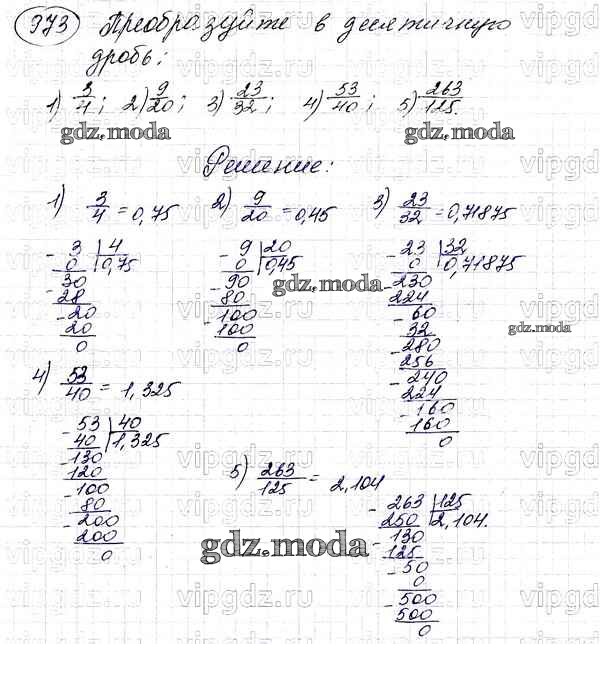 973 Преобразуйте в десятичную
дробь:
1) 3/4; 2) 9/20; 3) 23/32; 4) 53/40; 5) 263/125.
gdz.moda
Решение:
1) 3/4 = 0,75
2) 9/20 = 0,45
3) 23/32 = 0,71875
- 3 | 4
0 | 0,75
- 30
28
- 20
20
0
- 9 | 20
0 | 0,45
- 90
80
- 100
100
0
gdz.moda
- 23 | 32
0 | 0,71875
- 230
224
- 60
32
- 280
256
- 240
224
- 160
160
0
gdz.moda
4) 53/40 = 1,325
- 53 | 40
40 | 1,325
- 130
120
- 100
80
- 200
200
0
5) 263/125 = 2,104
- 263 | 125
250 | 2,104.
- 130
125
- 50
0
- 500
500
0
gdz.moda
vipgdz.ru